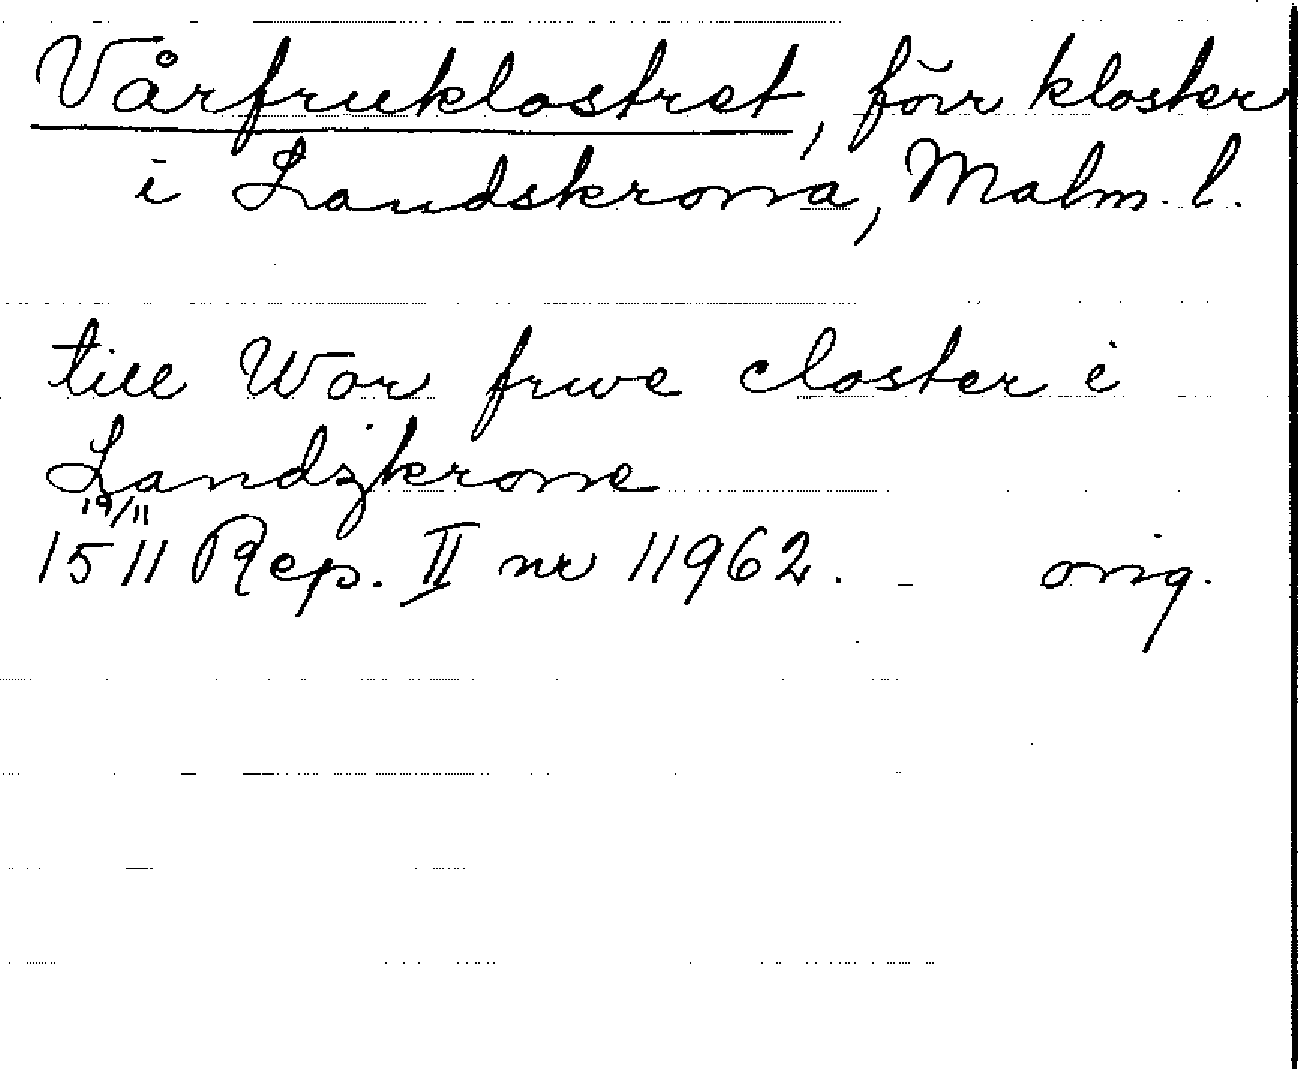 Vårfruklostret, förr kloster
i Landskrona, Malm. l.
till Wor frwe closter i
Landzkrone
19/11
1511 Rep. II nr 11962. - orig.